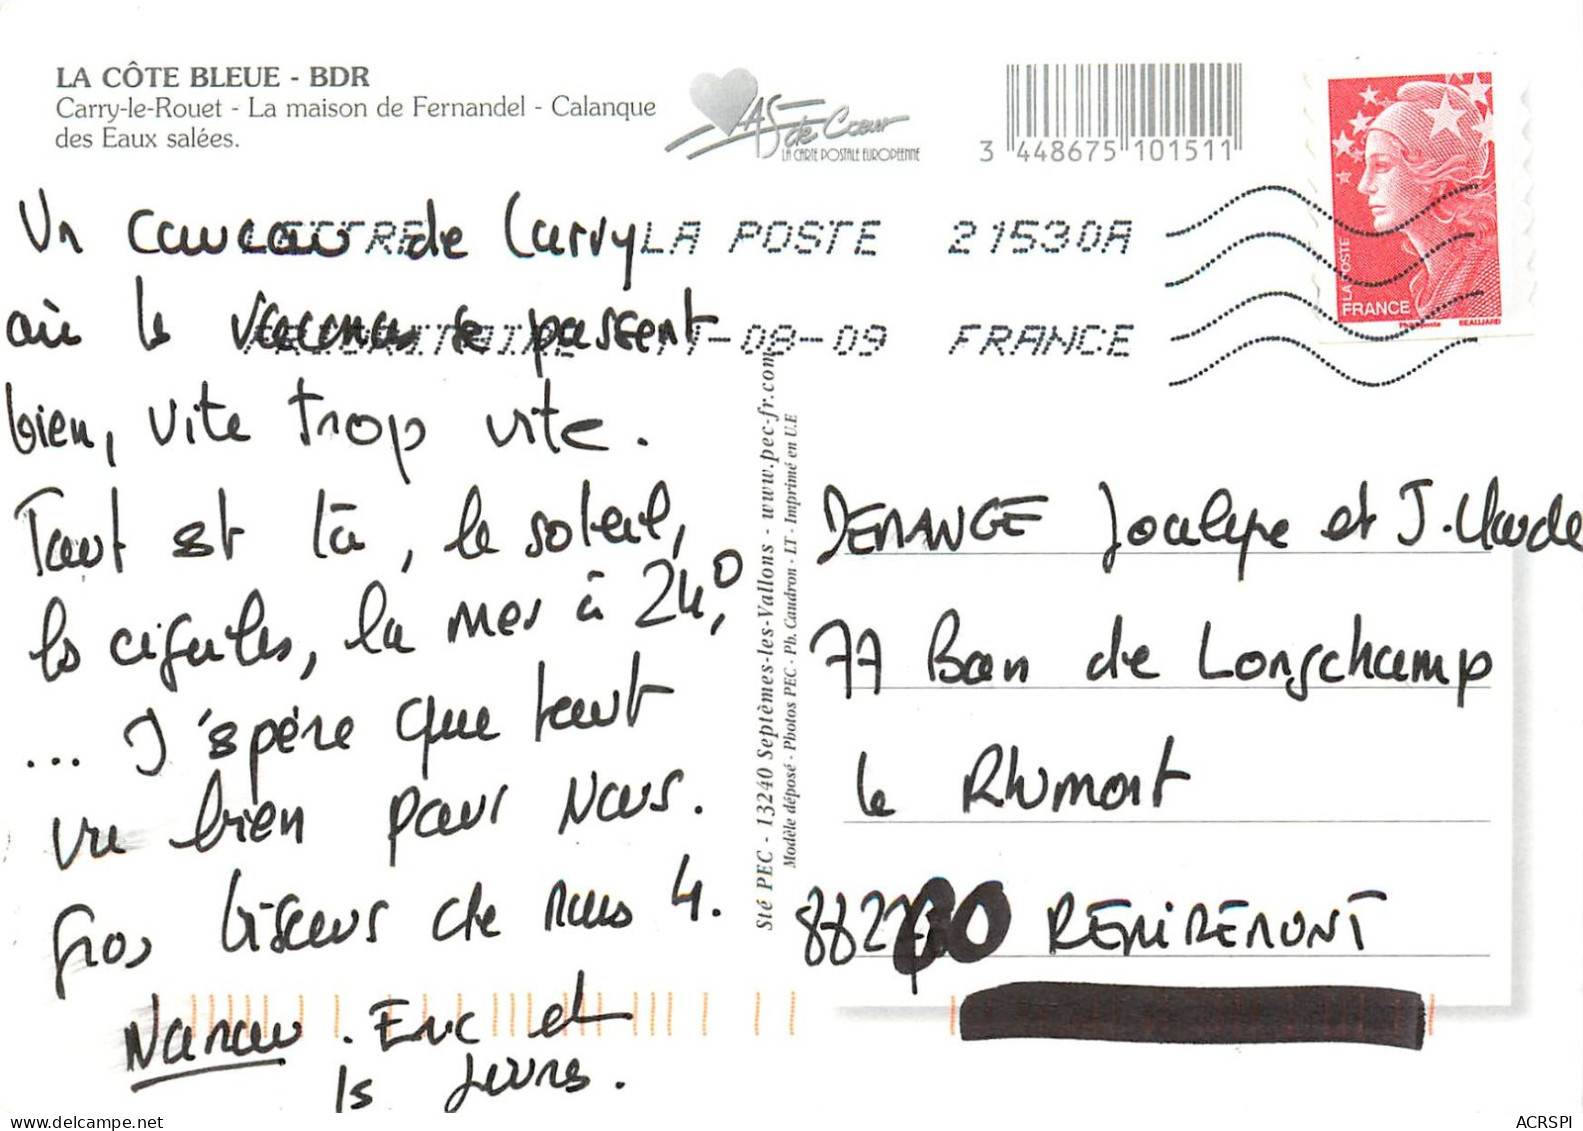 LA CÔTE BLEUE - BDR
Carry-le-Rouet - La maison de Fernandel - Calanque
des Eaux salées.
AS de Cœur
LA CARTE POSTALE EUROPÉENNE
3 448675 101511
LA POSTE
FRANCE
Phil@poste BEAUJARD
LA POSTE 21530A
-08-09 FRANCE
Un coucou de Carry
où les vacances se passent
bien, vite trop vite.
Tout est là, le soleil,
les cigales, la mer à 24°,
... J'espère que tout
va bien pour vous.
Gros bisous de nous 4.
Eric et
les jeunes.
Sté PEC - 13240 Septèmes-les-Vallons - www.pec-fr.com
Modèle déposé - Photos PEC - Ph. Caudron - LT - Imprimé en U.E
DEMANGE Jocelyne et J.Claude
77 Ban de Longchamp
le Rhumont
REMIREMONT
ACRSPI